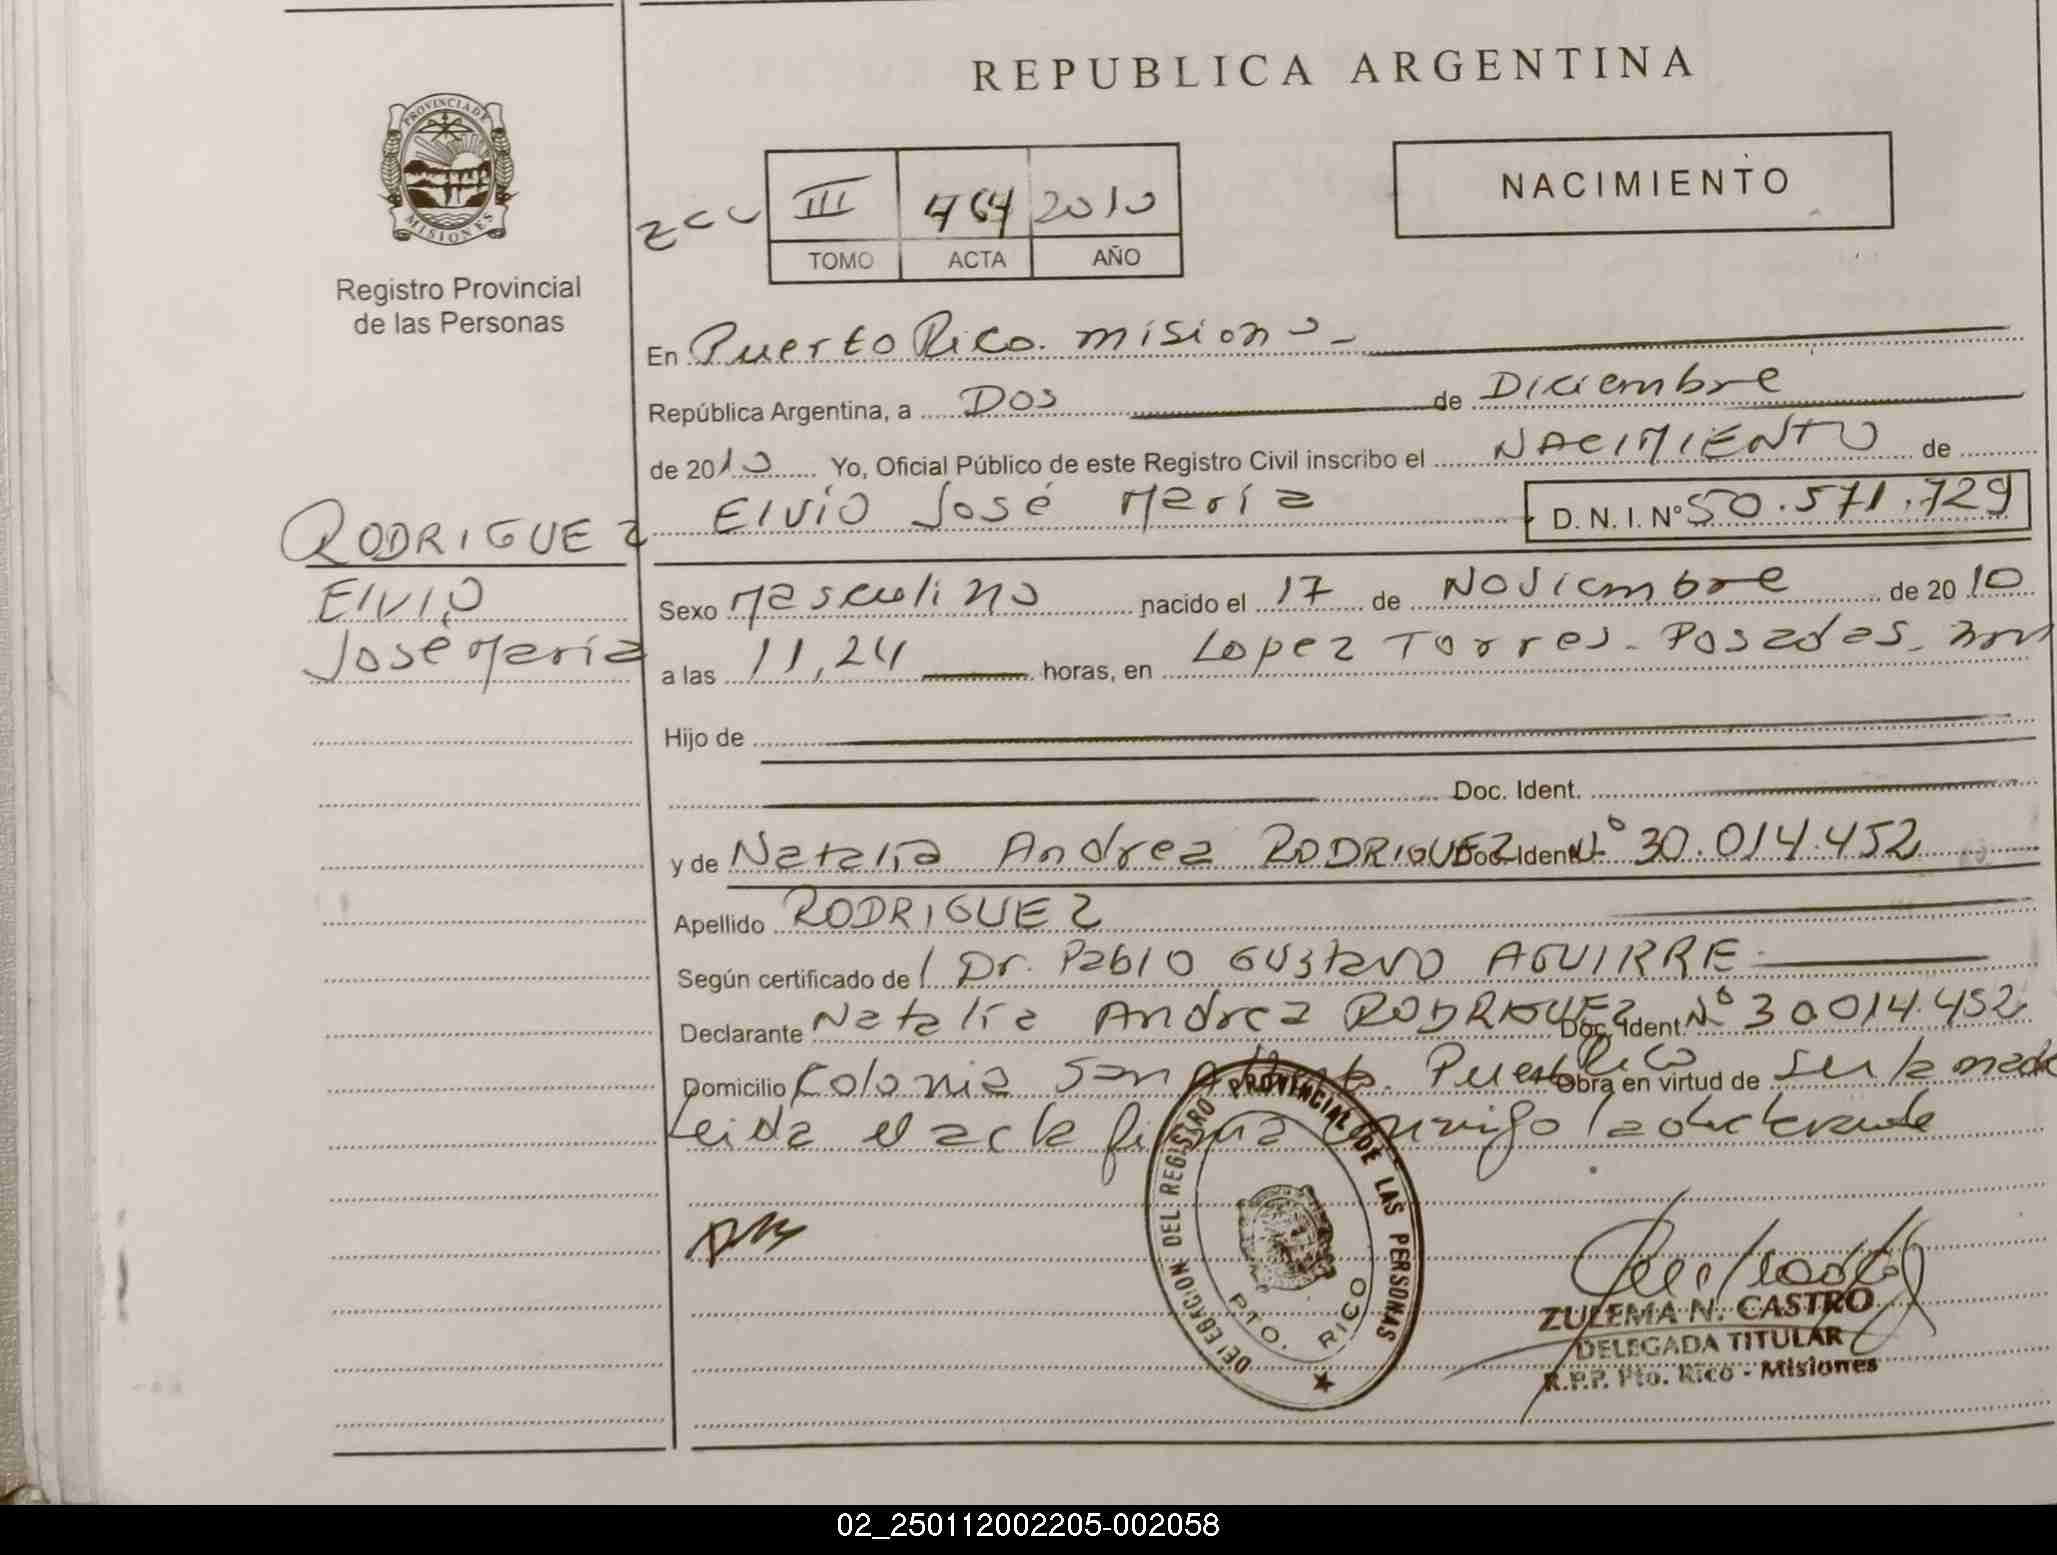 REPUBLICA ARGENTINA
PROVINCIA DE
MISIONES
Registro Provincial
de las Personas
III 464 2010
TOMO ACTA AÑO
NACIMIENTO
En Puerto Rico. Misiones
República Argentina, a Dos de Diciembre
de 2010 Yo, Oficial Público de este Registro Civil inscribo el NACIMIENTO de
Elvio José María D. N. I. N° 50.571.729
RODRIGUEZ
Elvio
José María
Sexo Masculino nacido el 17 de Noviembre de 2010
a las 11,24 horas, en Lopez Torres - Posadas -
Hijo de
Doc. Ident.
y de Natalia Andrea RODRIGUEZ Doc. Ident. N° 30.014.452
Apellido RODRIGUEZ
Según certificado de l Dr. Pablo Gustavo AGUIRRE
Declarante Natalia Andrea RODRIGUEZ Doc. Ident. N° 30.014.452
Domicilio Colonia San Alberto. Puerto Rico Obra en virtud de ser la madre
Leida el acta firma conmigo la declarante
DELEGACION DEL REGISTRO PROVINCIAL DE LAS PERSONAS
PTO. RICO
ZULEMA N. CASTRO
DELEGADA TITULAR
R.P.P. Pto. Rico - Misiones
02_250112002205-002058